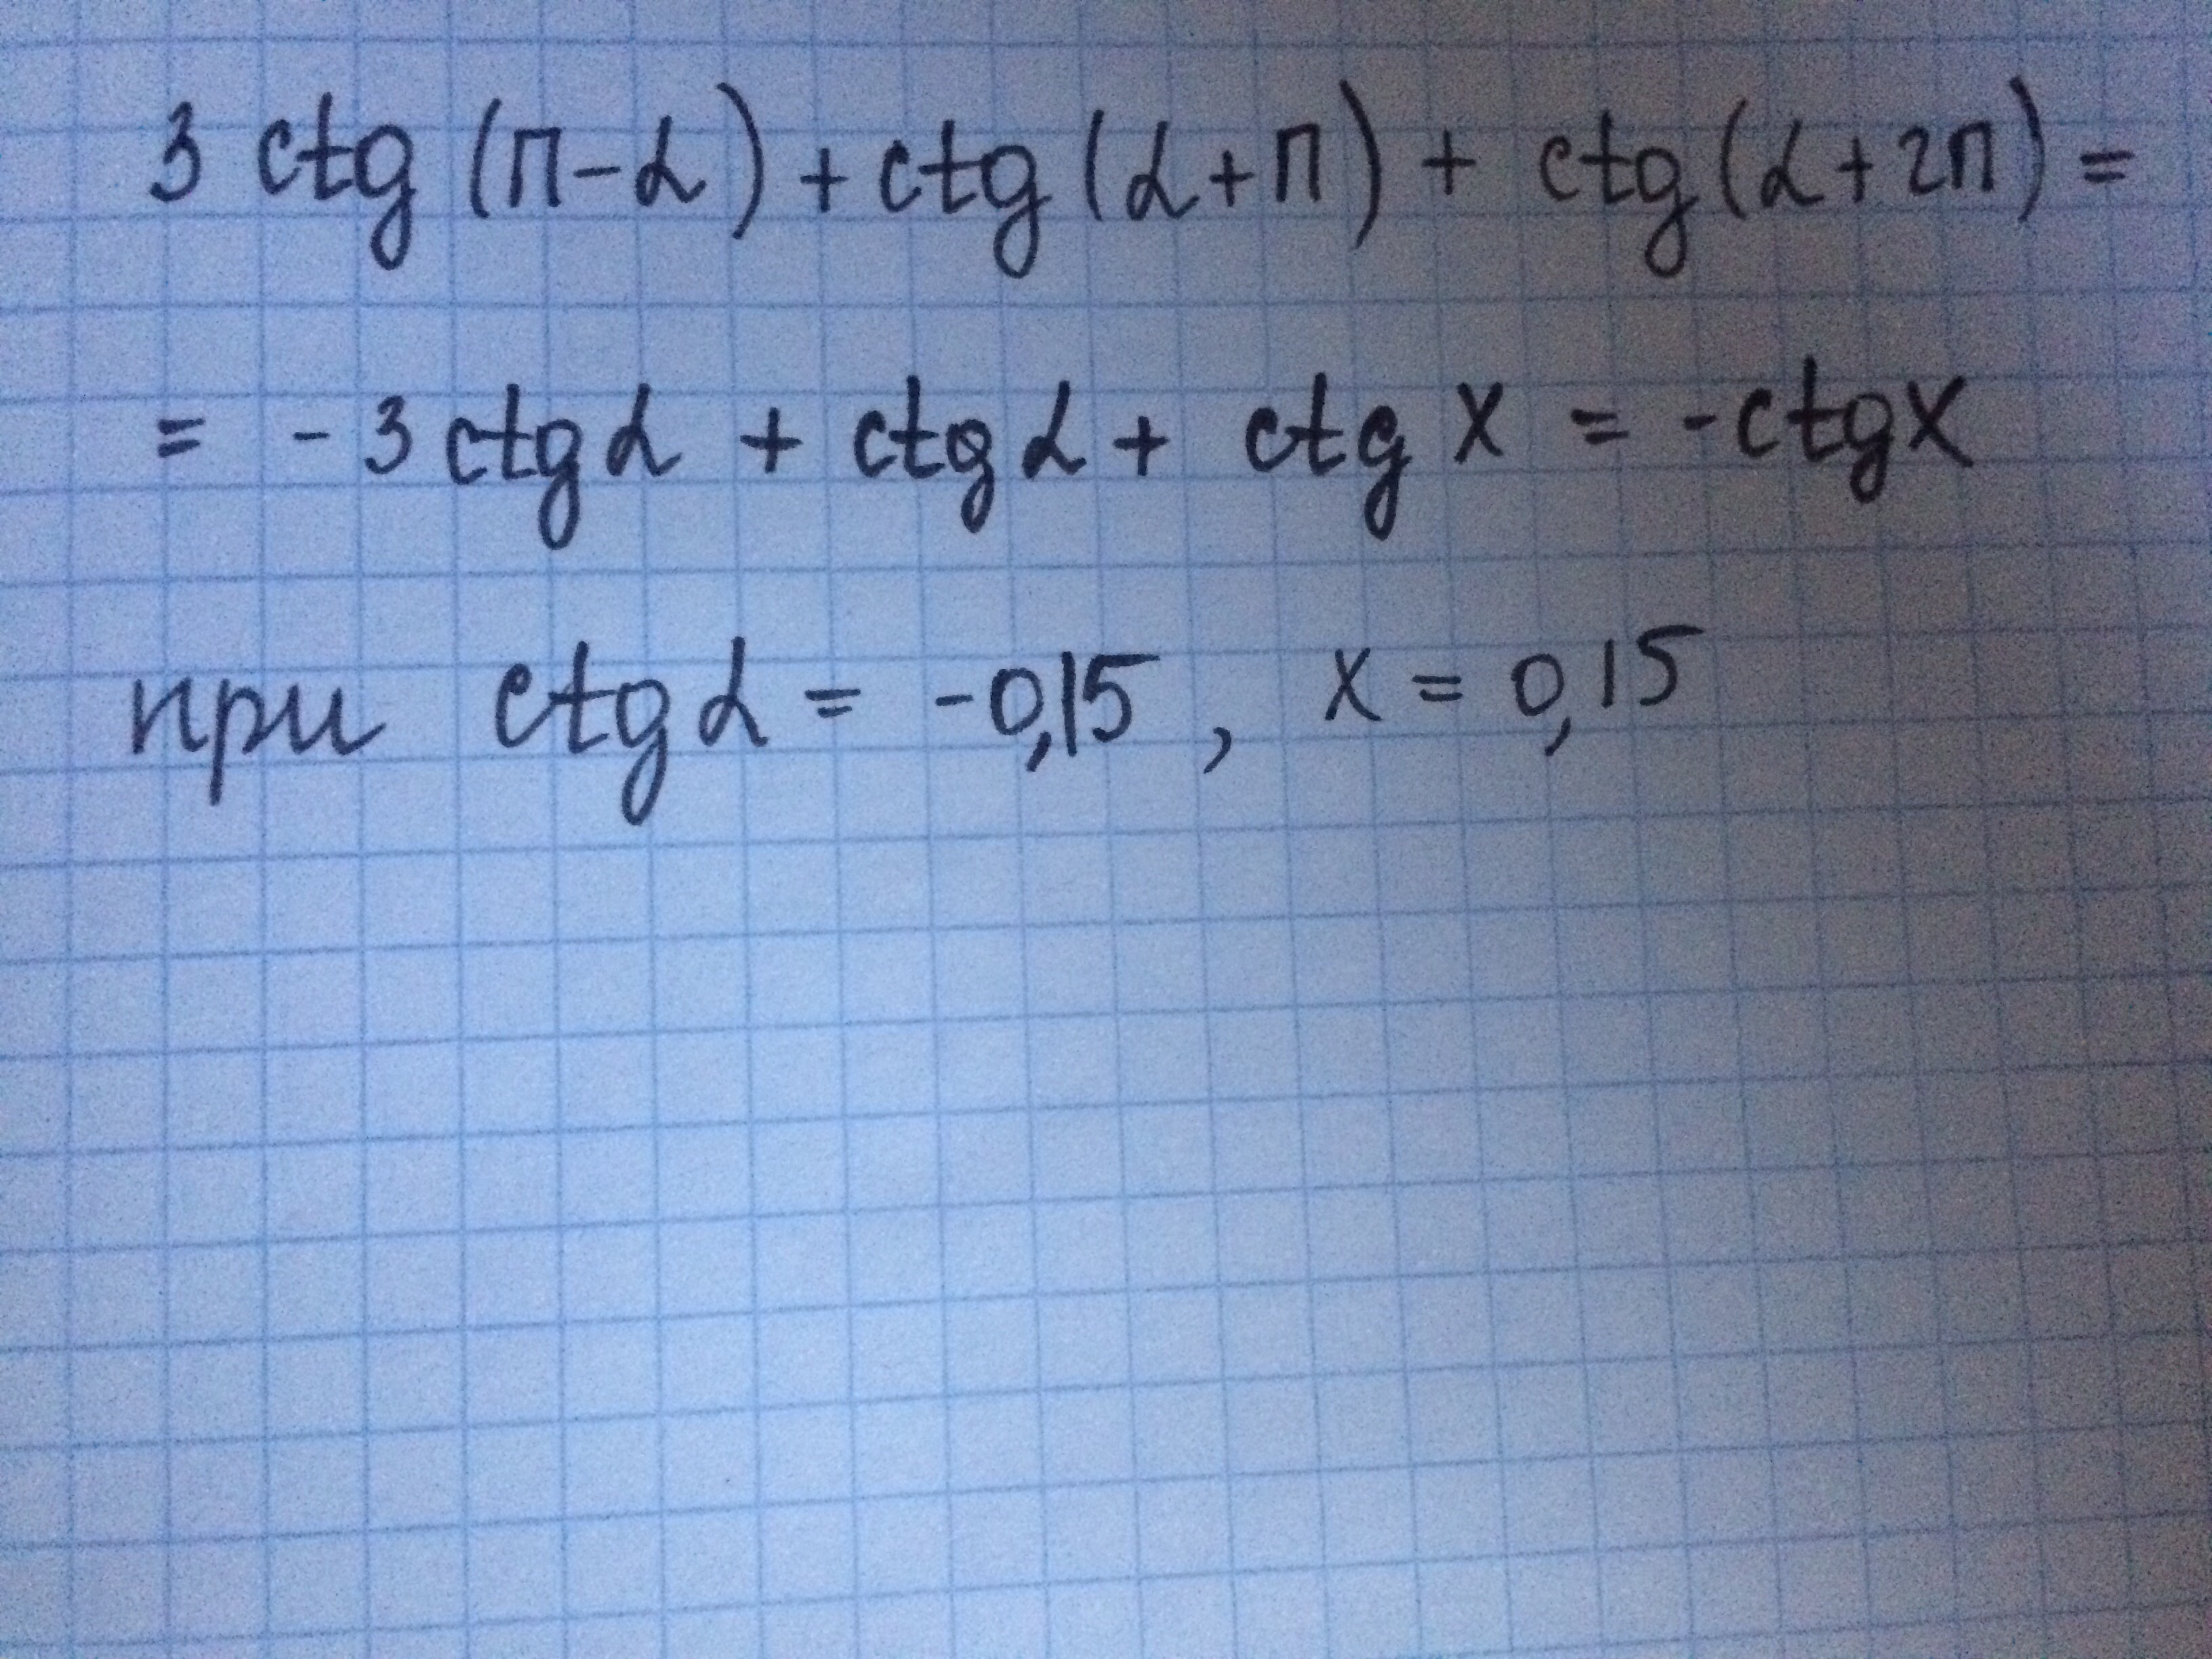 3 ctg (π-α) + ctg (α+π) + ctg (α+2π) =
= -3 ctg α + ctg α + ctg x = -ctg x
при ctg α = -0,15, x = 0,15